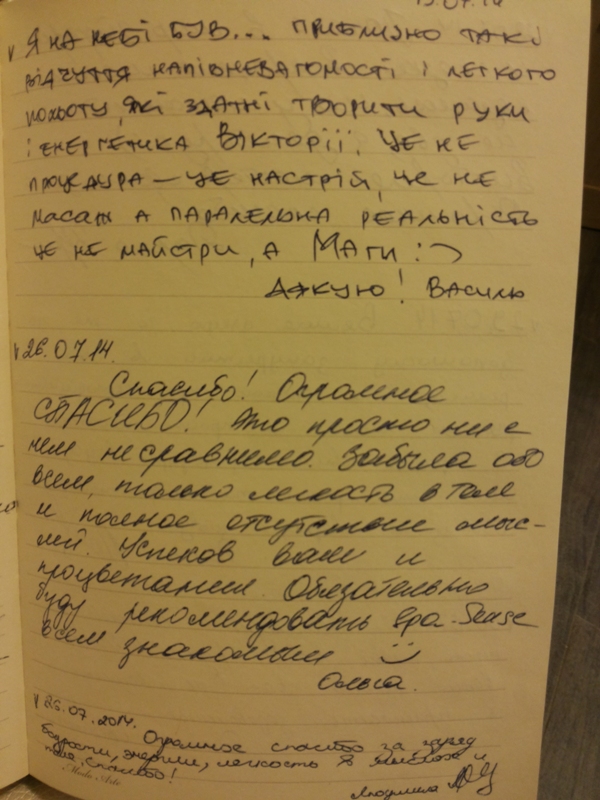 19.07.14
Я НА НЕБІ БУВ... ПРИБЛИЗНО ТАКІ
ВІДЧУТТЯ НАПІВНЕВАГОМОСТІ І ЛЕГКОГО
ПОЛЬОТУ, ЯКІ ЗДАТНІ ТВОРИТИ РУКИ
І ЕНЕРГЕТИКА ВІКТОРІЇ. ЦЕ НЕ
ПРОЦЕДУРА — ЦЕ НАСТРІЙ, ЦЕ НЕ
МАСАЖ А ПАРАЛЕЛЬНА РЕАЛЬНІСТЬ
ЦЕ НЕ МАЙСТРИ, А МАГИ :)
ДЯКУЮ! ВАСИЛЬ
26.07.14.
Спасибо! Огромное
СПАСИБО! Это просто ни с
чем не сравнимо. Забыла обо
всем, только легкость в теле
и полное отсутствие мыс-
лей. Успехов вам и
процветания. Обязательно
буду рекомендовать Spa-Sense
всем знакомым
Ольга.
26.07.2014. Огромное спасибо за заряд
бодрости, энергии, легкость в мыслях и
теле. Спасибо!
Людмила